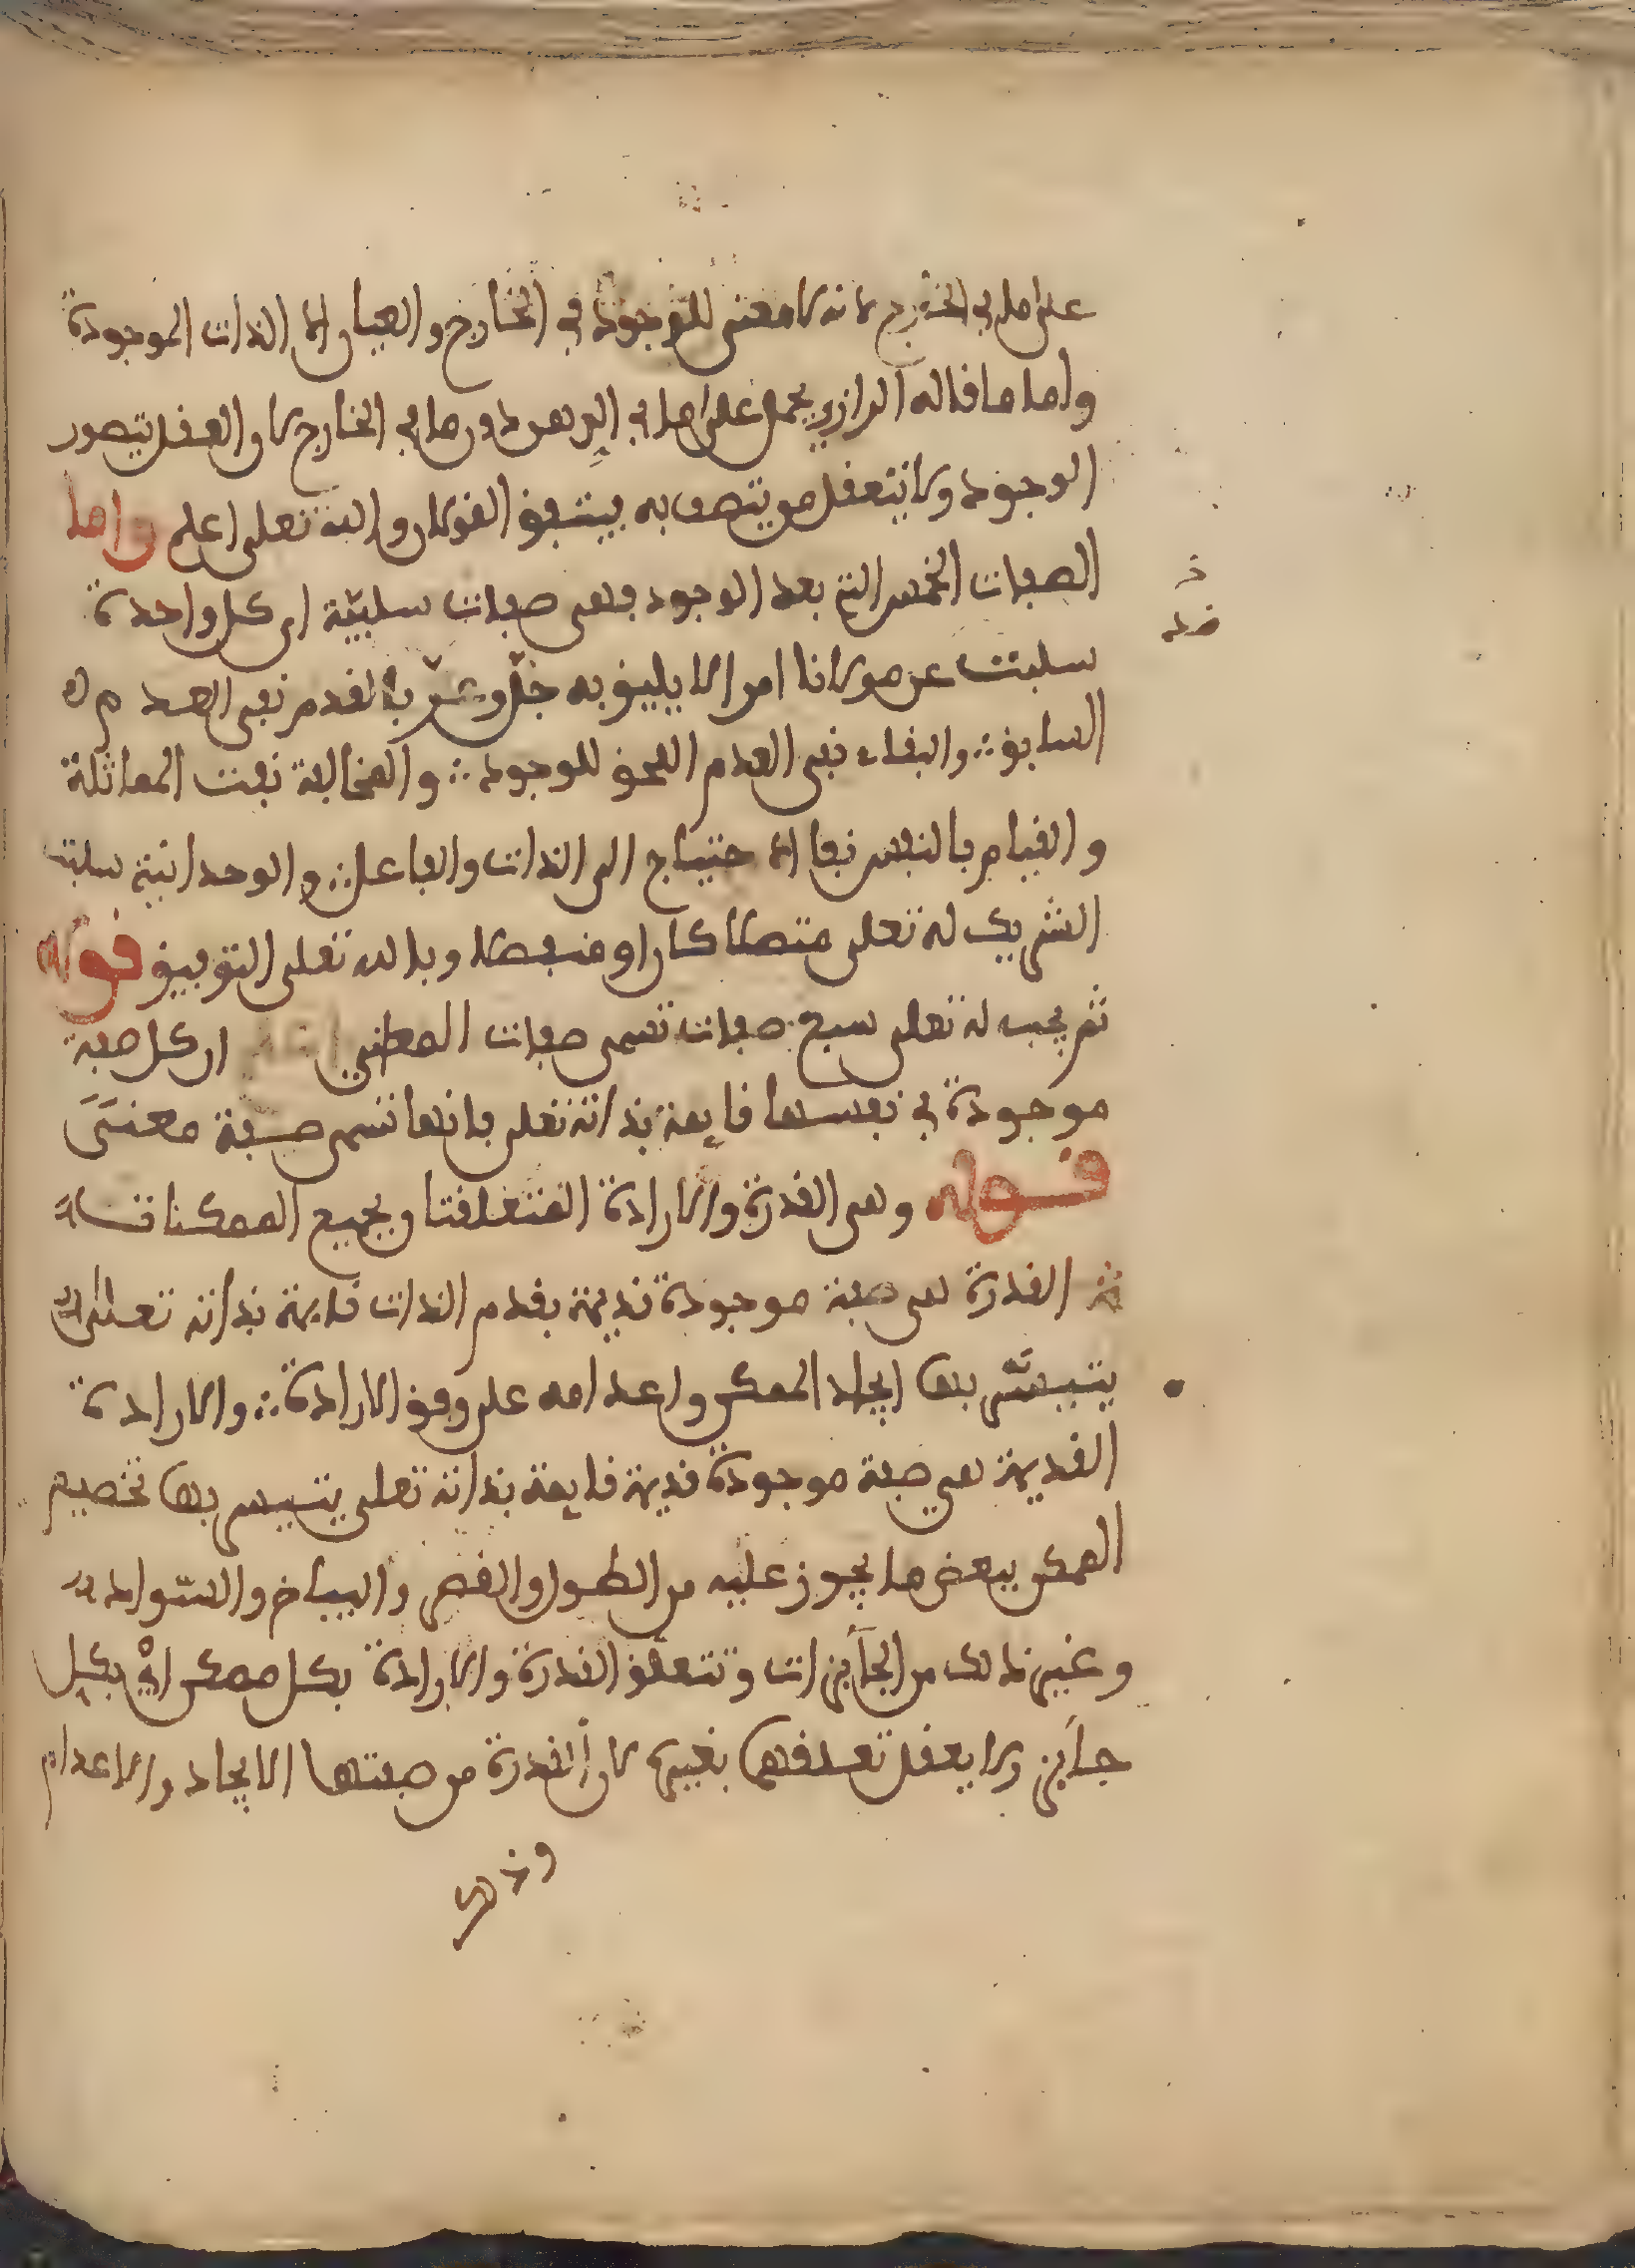 على ما في الخارج لانه لا معنى للموجود في الخارج والعيان الا الذات الموجودة
واما ما قاله الرازي يحمل على ما في الذهن دون ما في الخارج لان العقل يتصور
الوجود ولا يتعقل من يتصف به فيتفق القولان والله تعلى اعلم واما
الصفات الخمس التي بعد الوجود فهي صفات سلبيّة اي كل واحدة
سلبت عن مولانا امرا لا يليق به جلّ وعزّ فالقدم نفى العدم
السابق ∴ والبقاء نفى العدم اللحق للوجود ∴ والمخالفة نفت المماثلة
والقيام بالنفس نفا الاحتياج الى الذات والفاعل ∴ والوحدانية سلبت
الشريك له تعلى متصلا كان او منفصلا وبالله تعلى التوفيق قوله
ثم يجب له تعلى سبع صفات تسمى صفات المعاني ان كل صفة
موجودة في نفسها قايمة بذاته تعلى فانها تسمى صفة معنى
قوله وهي القدرة والارادة المتعلقتان بجميع الممكنات
ش القدرة هي صفة موجودة قديمة بقدم الذات قايمة بذاته تعلى
يتيسّر بها ايجاد الممكن واعدامه على وفق الارادة ∴ والارادة
القديمة هي صفة موجودة قديمة قايمة بذاته تعلى يتيسر بها تخصيص
الممكن ببعض ما يجوز عليه من الطول والقصر والبياض والسّواد
وغير ذالك من الجآيزات وتتعلق القدرة والارادة بكل ممكن اي بكل
جآيز ولا يعقل تعلقهما بغيره لان القدرة من صفتها الايجاد والاعدام